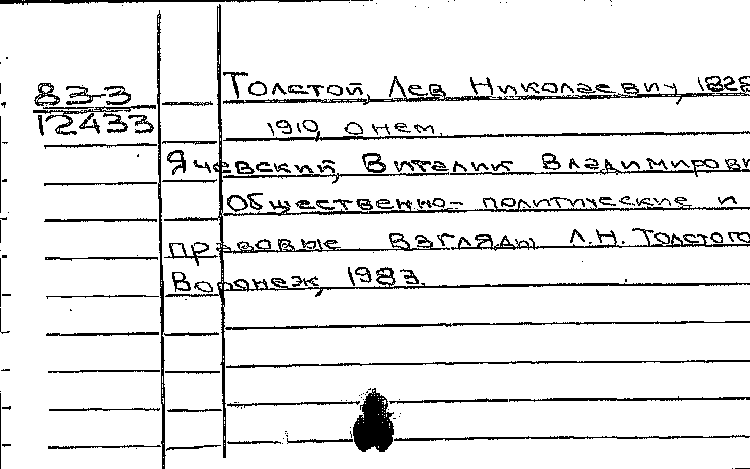 83-3
12433
Толстой, Лев Николаевич, 1828
1910, о нем.
Ячевский, Виталий Владимирови
Общественно-политические и
правовые взгляды Л.Н. Толстого
Воронеж, 1983.